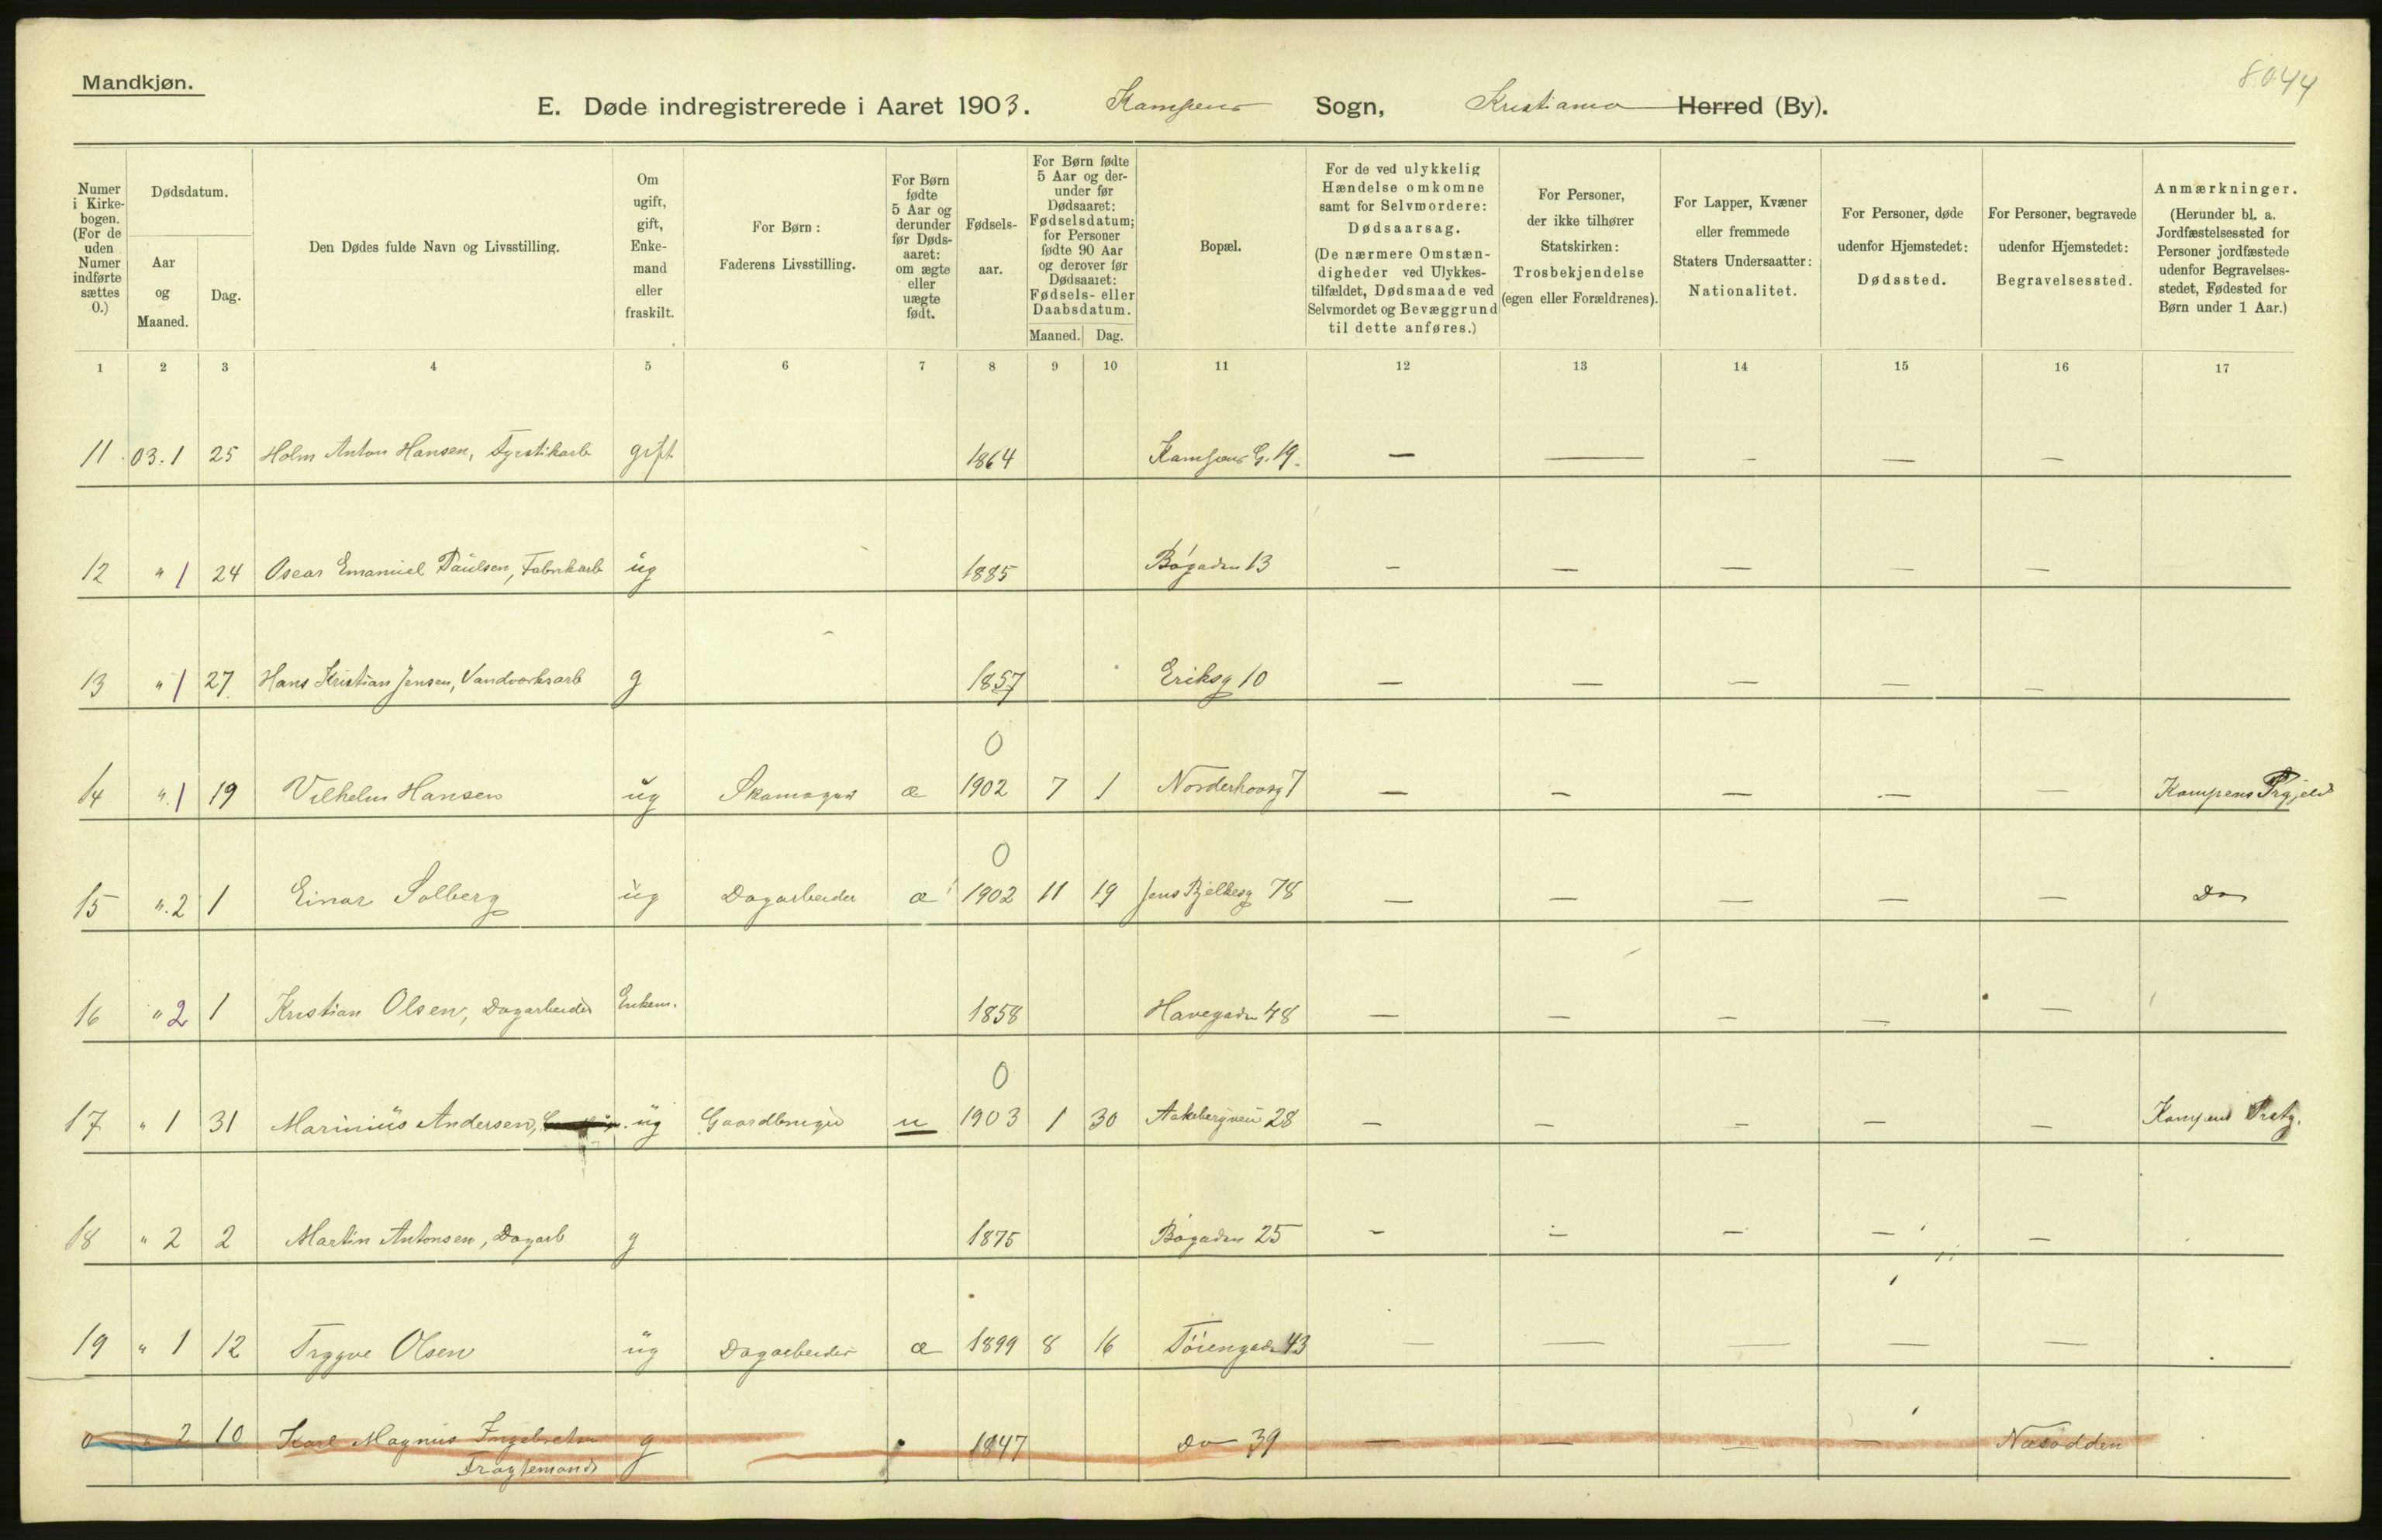 Mandkjøn.
8044
E. Døde indregistrerede i Aaret 1903. Kampens Sogn, Kristiania Herred (By).
Numer i Kirke-bogen. (For de uden Numer indførte sættes 0.)
Dødsdatum.
Aar og Maaned.
Dag.
Den Dødes fulde Navn og Livsstilling.
Om ugift, gift, Enke-mand eller fraskilt.
For Børn: Faderens Livsstilling.
For Børn fødte 5 Aar og derunder før Døds-aaret: om ægte eller uægte født.
Fødsels-aar.
For Børn fødte 5 Aar og der-under før Dødsaaret: Fødselsdatum; for Personer fødte 90 Aar og derover før Dødsaaret: Fødsels- eller Daabsdatum.
Maaned. Dag.
Bopæl.
For de ved ulykkelig Hændelse omkomne samt for Selvmordere: Dødsaarsag. (De nærmere Omstæn-digheder ved Ulykkes-tilfældet, Dødsmaade ved Selvmordet og Bevæggrund til dette anføres.)
For Personer, der ikke tilhører Statskirken: Trosbekjendelse (egen eller Forældrenes).
For Lapper, Kvæner eller fremmede Staters Undersaatter: Nationalitet.
For Personer, døde udenfor Hjemstedet: Dødssted.
For Personer, begravede udenfor Hjemstedet: Begravelsessted.
Anmærkninger. (Herunder bl. a. Jordfæstelsessted for Personer jordfæstede udenfor Begravelses-stedet, Fødested for Børn under 1 Aar.)
1 2 3 4 5 6 7 8 9 10 11 12 13 14 15 16 17
11 03.1 25 Holm Anton Hansen, Fyrstikarb gift 1864 Kampens G. 19. — — — — —
12 " 1 24 Oscar Emanuel Paulsen, Fabrikarb ug 1885 Bøgaden 13 — — — — —
13 " 1 27 Hans Kristian Jensen, Vandværksarb g 1857 Eriksg 10 — — — — —
0
14 " 1 19 Vilhelm Hansen ug Skomager æ 1902 7 1 Norderhovsg 7 — — — — — Kampens Prgjeld
0
15 " 2 1 Einar Solberg ug Dagarbeider æ 1902 11 19 Jens Bjelkesg 78 — — — — — Do
16 " 2 1 Kristian Olsen, Dagarbeider Enkem. 1858 Havegaden 48 — — — — —
0
17 " 1 31 Marinius Andersen, ug Gaardbruger u 1903 1 30 Aakebergveien 28 — — — — — Kampens Prstg.
18 " 2 2 Martin Antonsen, Dagarb g 1875 Bøgaden 25 — — — — —
19 " 1 12 Trygve Olsen ug Dagarbeider æ 1899 8 16 Tøiengaden 43 — — — — —
0 " 2 10 Karl Magnus Ingebretsen g 1847 Do 39 — — — — Næsodden
Fragtemand